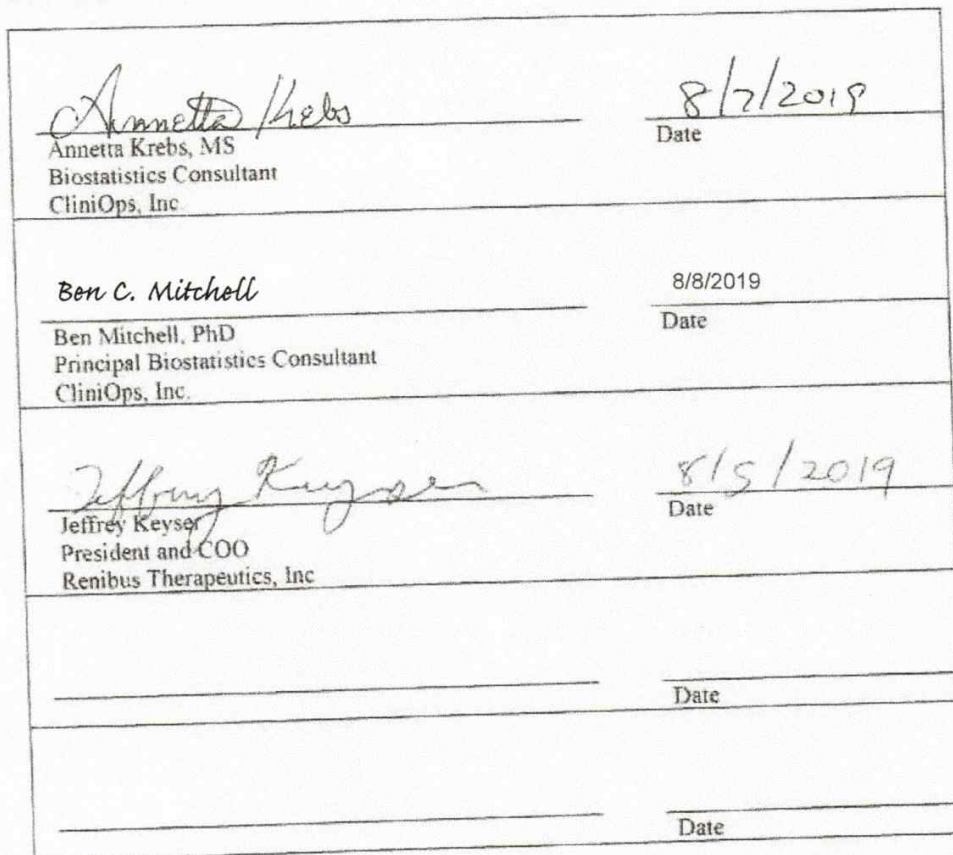 Annetta Krebs 8/7/2019
Annetta Krebs, MS Date
Biostatistics Consultant
CliniOps, Inc.
Ben C. Mitchell 8/8/2019
Ben Mitchell, PhD Date
Principal Biostatistics Consultant
CliniOps, Inc.
Jeffrey Keyser 8/5/2019
Jeffrey Keyser Date
President and COO
Renibus Therapeutics, Inc
Date
Date